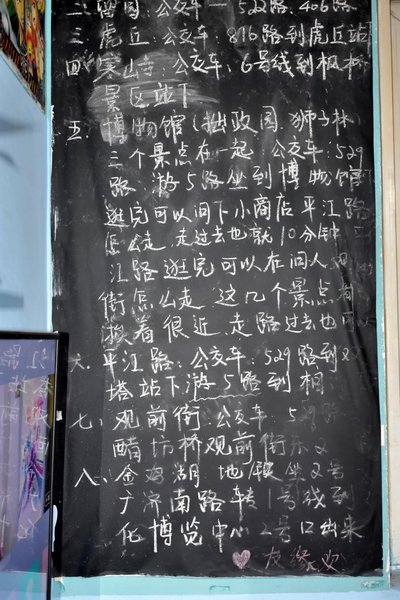 二、留园:公交车一522路.406路
三、虎丘:公交车:816路到虎丘站
四、寒山寺:公交车:6号线到枫桥
景区站下
五、博物馆(拙政园 狮子林)
三个景点在一起 公交车:529
路 游5路坐到博物馆
逛完可以问下小商店平江路
怎么走 走过去也就10分钟
江路逛完可以在问人 观
街怎么走 这几个景点
挨着很近 走路过去也可
六、平江路:公交车:529路到双
塔站下游5路到相
七、观前街:公交车:529路
醋坊桥观前街东
八、金鸡湖 地铁坐2号
广济南路转1号线到
化博览中心2号口出来
友缘